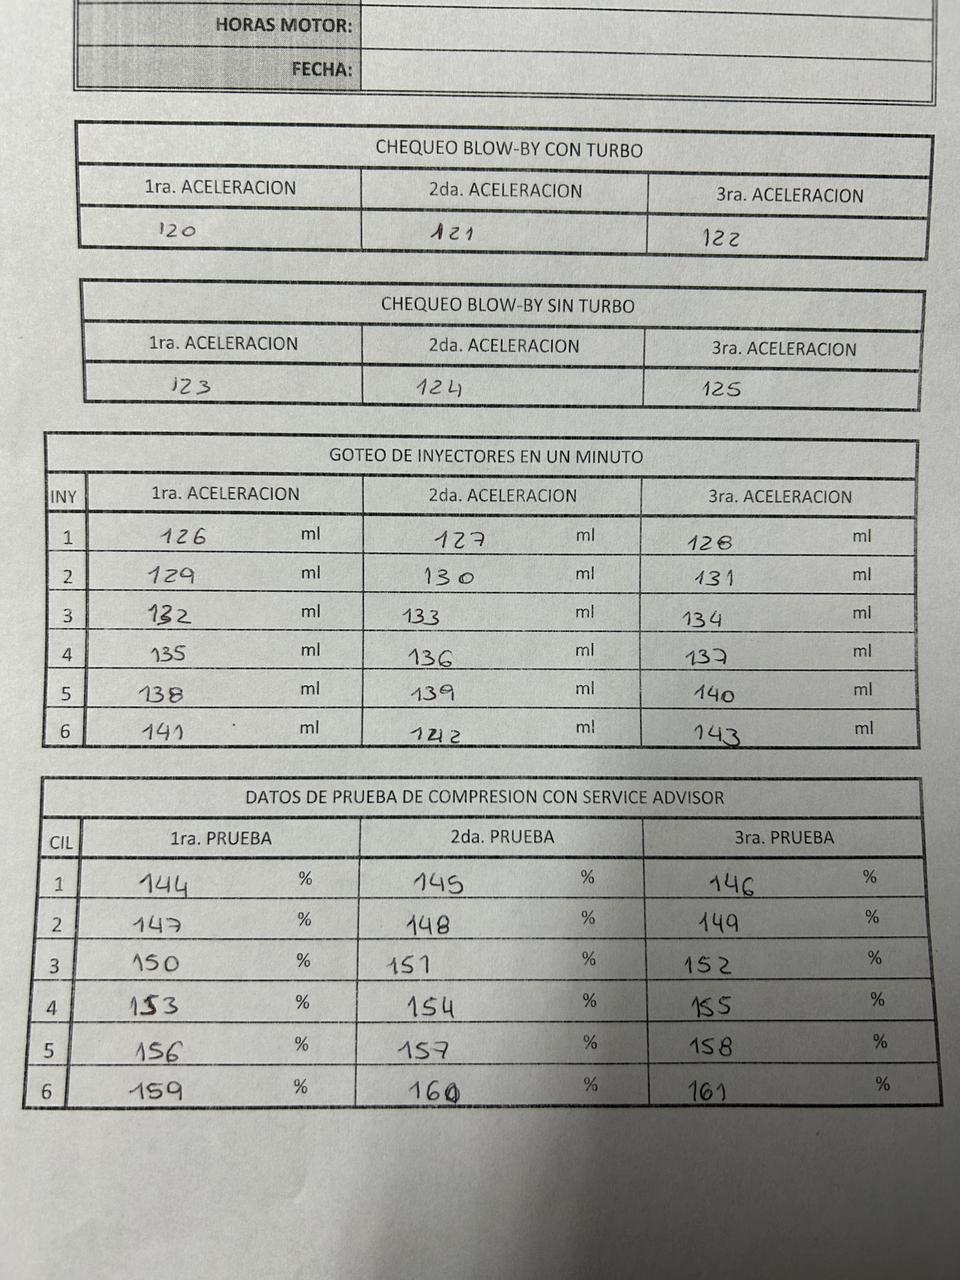 HORAS MOTOR:
FECHA:
CHEQUEO BLOW-BY CON TURBO
1ra. ACELERACION 2da. ACELERACION 3ra. ACELERACION
120 121 122
CHEQUEO BLOW-BY SIN TURBO
1ra. ACELERACION 2da. ACELERACION 3ra. ACELERACION
123 124 125
GOTEO DE INYECTORES EN UN MINUTO
INY 1ra. ACELERACION 2da. ACELERACION 3ra. ACELERACION
1 126 ml 127 ml 128 ml
2 129 ml 130 ml 131 ml
3 132 ml 133 ml 134 ml
4 135 ml 136 ml 137 ml
5 138 ml 139 ml 140 ml
6 141 ml 142 ml 143 ml
DATOS DE PRUEBA DE COMPRESION CON SERVICE ADVISOR
CIL 1ra. PRUEBA 2da. PRUEBA 3ra. PRUEBA
1 144 % 145 % 146 %
2 147 % 148 % 149 %
3 150 % 151 % 152 %
4 153 % 154 % 155 %
5 156 % 157 % 158 %
6 159 % 160 % 161 %